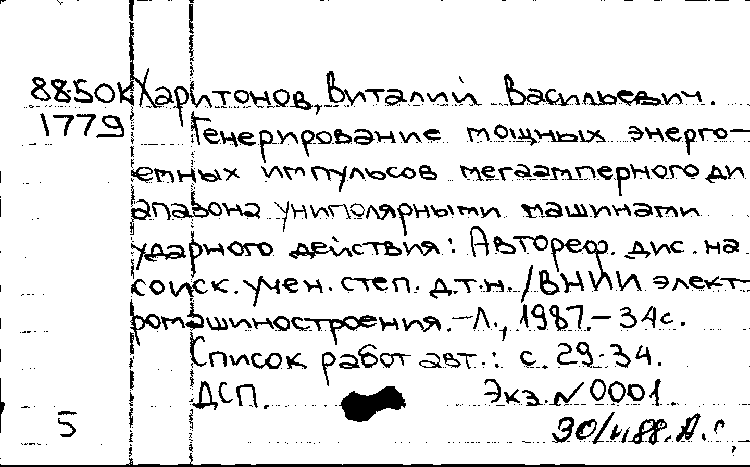 8850К Харитонов, Виталий Васильевич.
1779 Генерирование мощных энерго-
емных импульсов мегаамперного ди
апазона униполярными машинами
ударного действия: Автореф. дис. на
соиск. учен. степ. д.т.н. /ВНИИ элект-
ромашиностроения.-Л., 1987.-34с.
Список работ авт.: с. 29-34.
ДСП. Экз. N 0001.
5